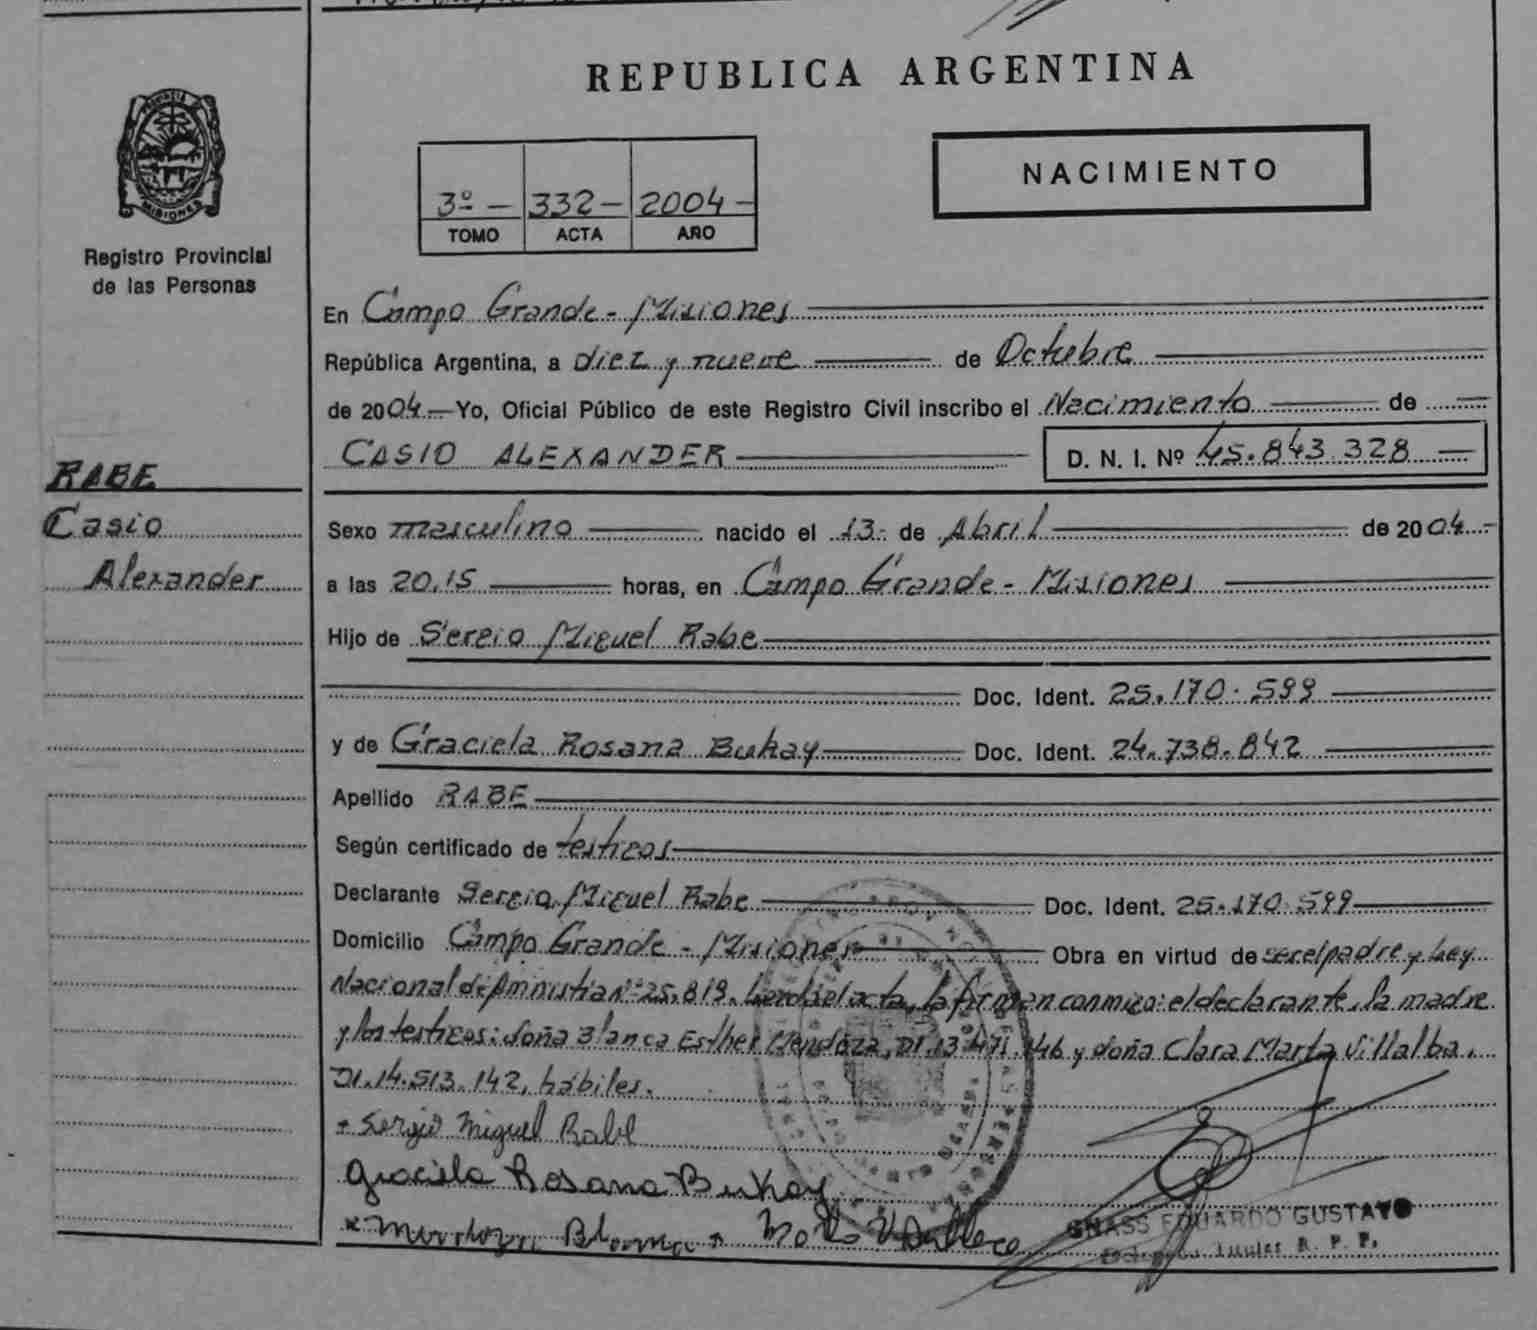 REPUBLICA ARGENTINA
MISIONES
Registro Provincial
de las Personas
3º - 332 - 2004 -
TOMO ACTA AÑO
NACIMIENTO
En Campo Grande - Misiones
República Argentina, a diez y nueve de Octubre
de 2004 - Yo, Oficial Público de este Registro Civil inscribo el Nacimiento de
CASIO ALEXANDER D. N. I. Nº 45.843.328
RABE
Casio
Alexander
Sexo masculino nacido el 13 de Abril de 2004
a las 20,15 horas, en Campo Grande - Misiones
Hijo de Sergio Miguel Rabe
Doc. Ident. 25.170.599
y de Graciela Rosana Bukay Doc. Ident. 24.738.842
Apellido RABE
Según certificado de testigos
Declarante Sergio Miguel Rabe Doc. Ident. 25.170.599
Domicilio Campo Grande - Misiones Obra en virtud de ser el padre y Ley
Nacional de Amnistia Nº 25.819. Leida el acta, la firman conmigo: el declarante, la madre
y los testigos: doña Blanca Esther Mendoza, DI. 13.471.146 y doña Clara Marta Villalba,
DI. 14.513.142, hábiles.
Sergio Miguel Rabe
Graciela Rosana Bukay
Mendoza Blanca
GNASS EDUARDO GUSTAVO
Titular R. P. P.